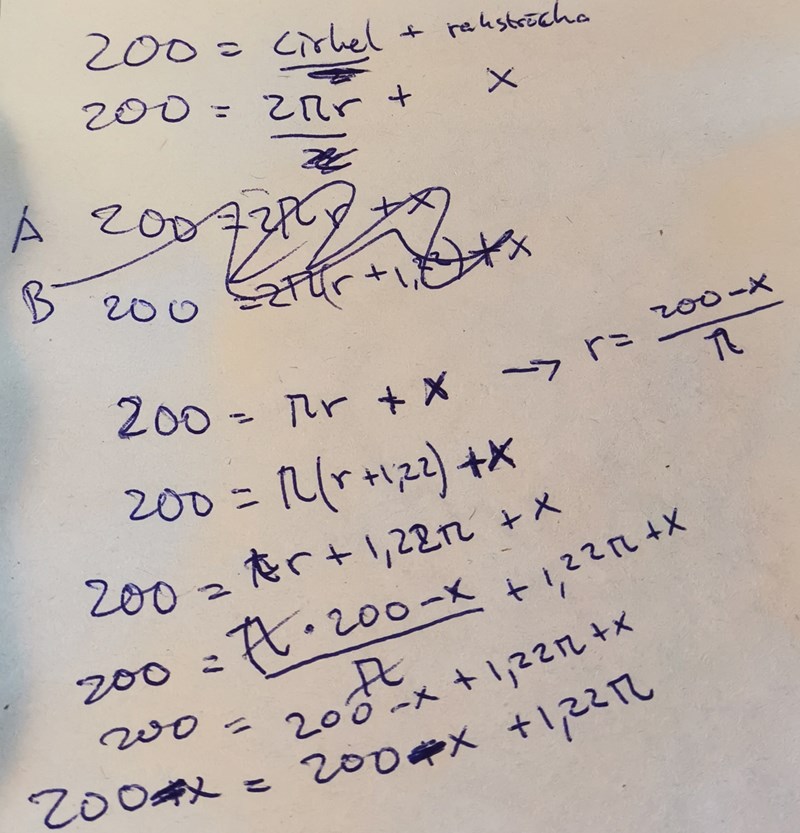 200 = cirkel + raksträcka
200 = 2πr + x
A 200 = 2πr + x
B 200 = 2π(r + 1,22) + x
200 = πr + x → r = (200-x)/π
200 = π(r+1,22) + x
200 = πr + 1,22π + x
200 = π·200-x/π + 1,22π + x
200 = 200-x + 1,22π + x
200-x = 200-x + 1,22π